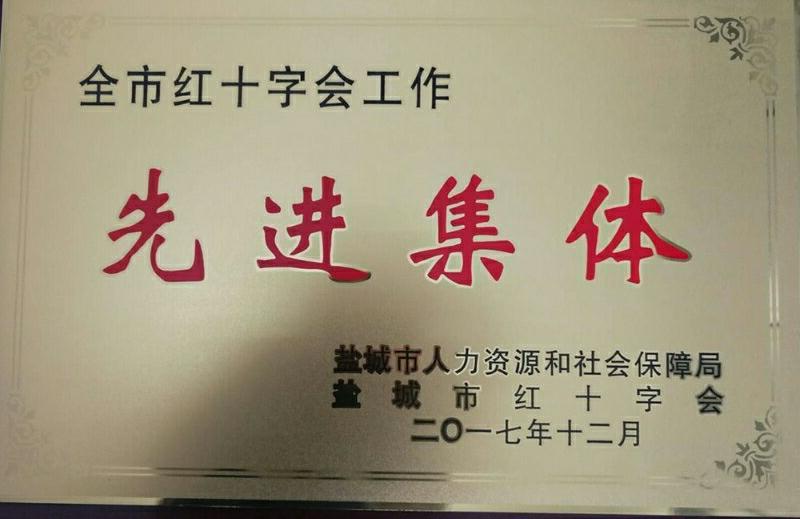 全市红十字会工作
先进集体
盐城市人力资源和社会保障局
盐城市红十字会
二〇一七年十二月